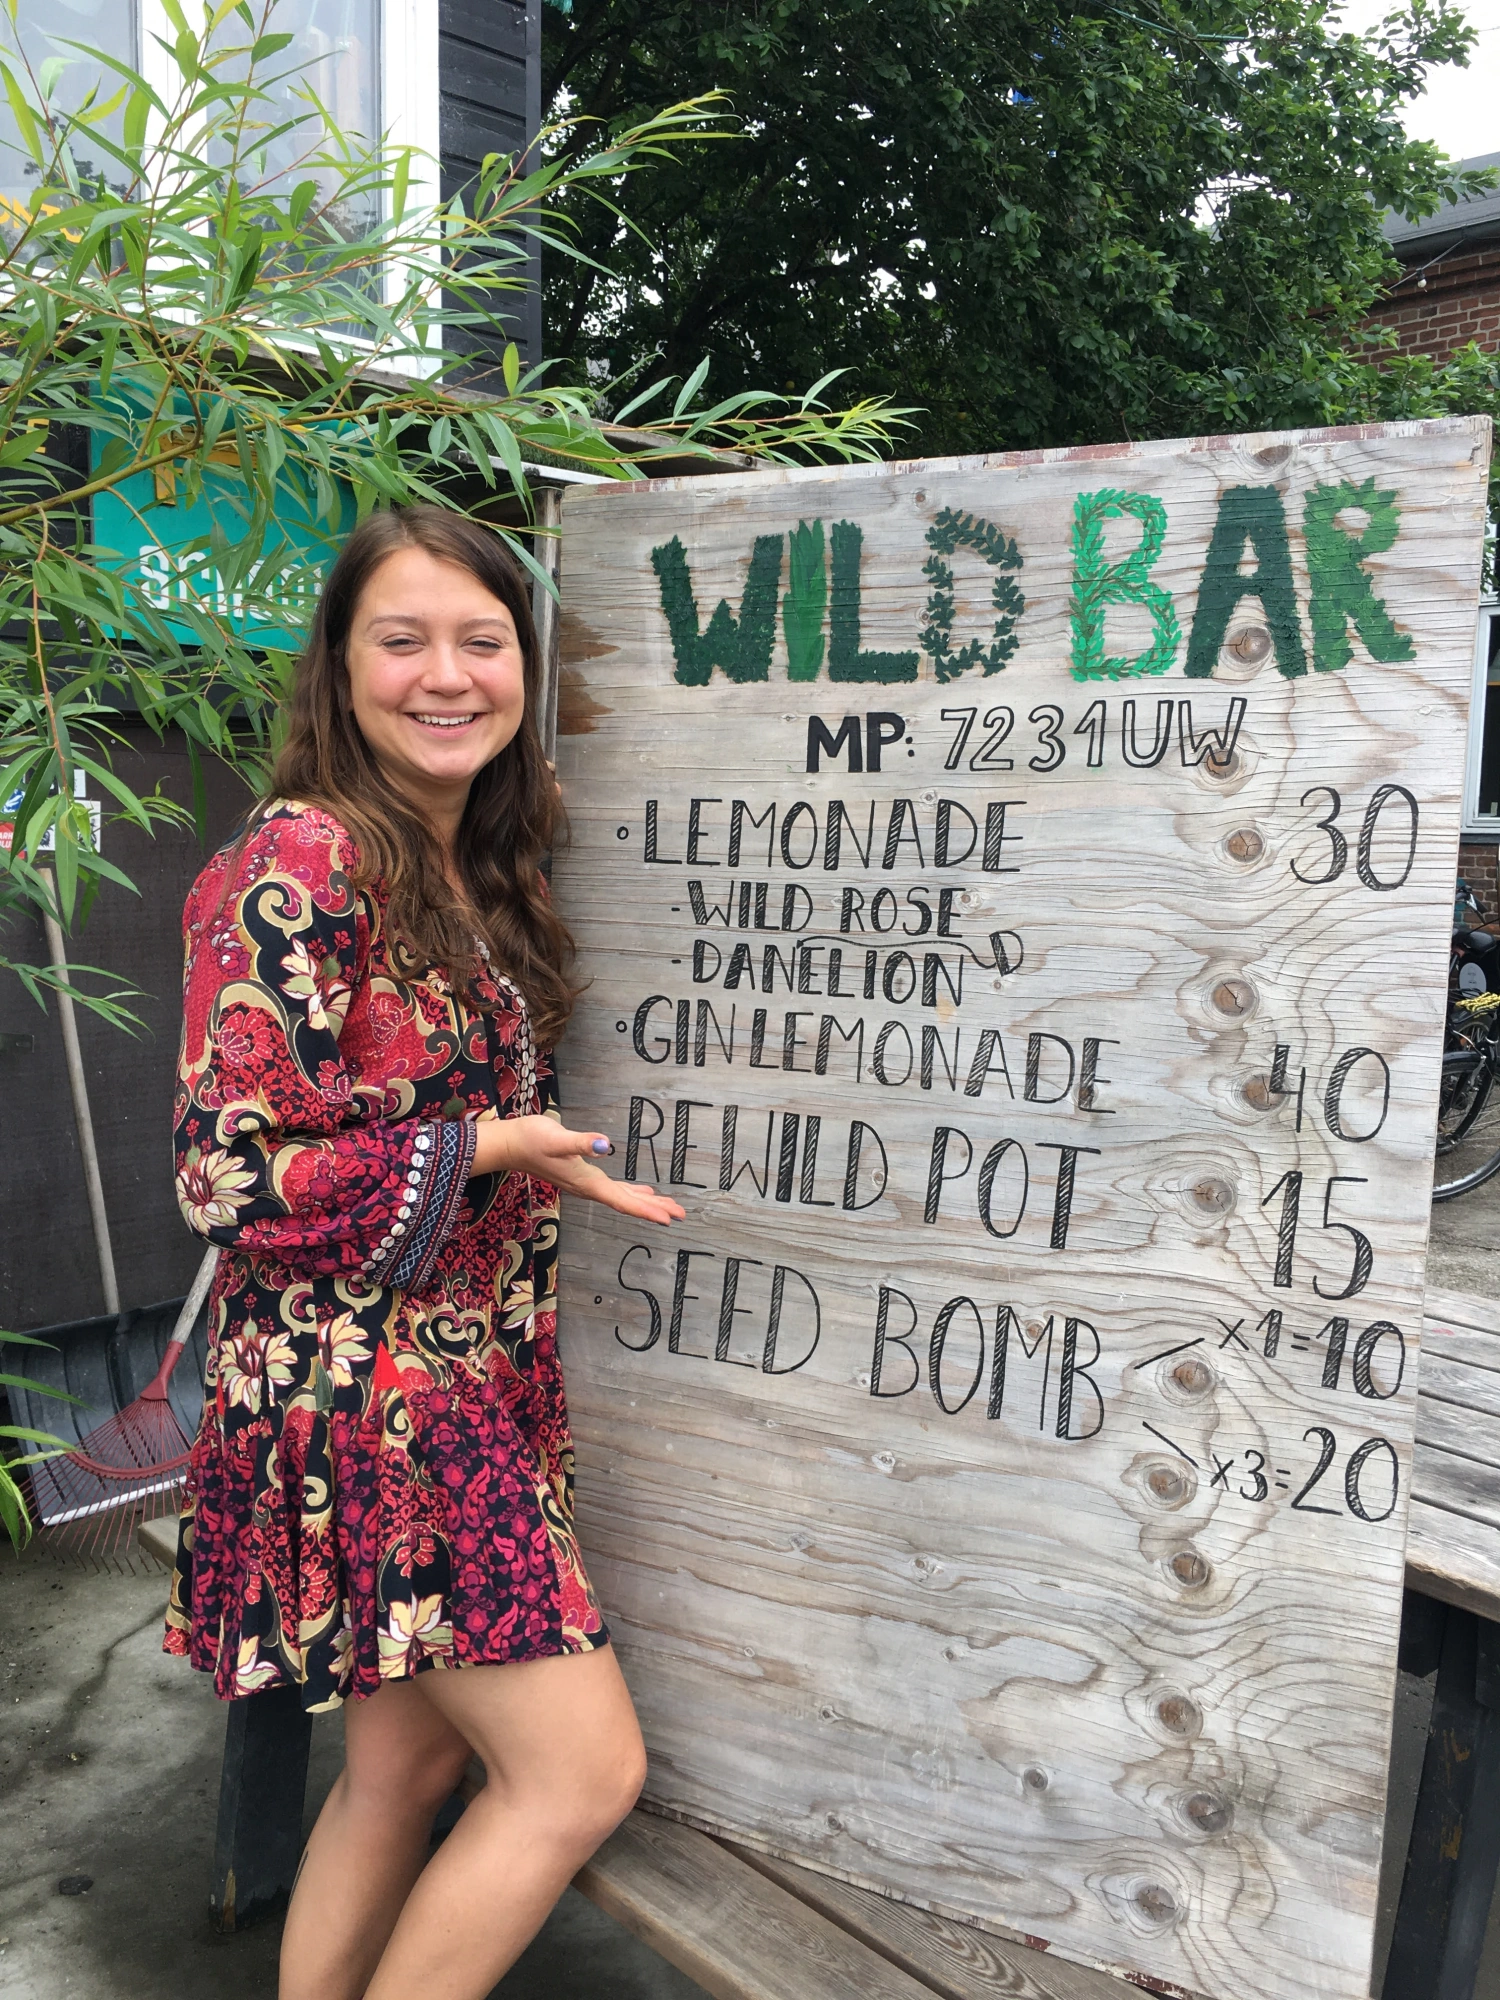 WILD BAR
MP: 7231UW
• LEMONADE 30
- WILD ROSE
- DANELION D
• GIN LEMONADE 40
• REWILD POT 15
• SEED BOMB x1=10
x3=20